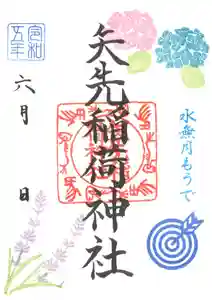 矢先稲荷神社
水無月もうで
令和
五年
六月 日